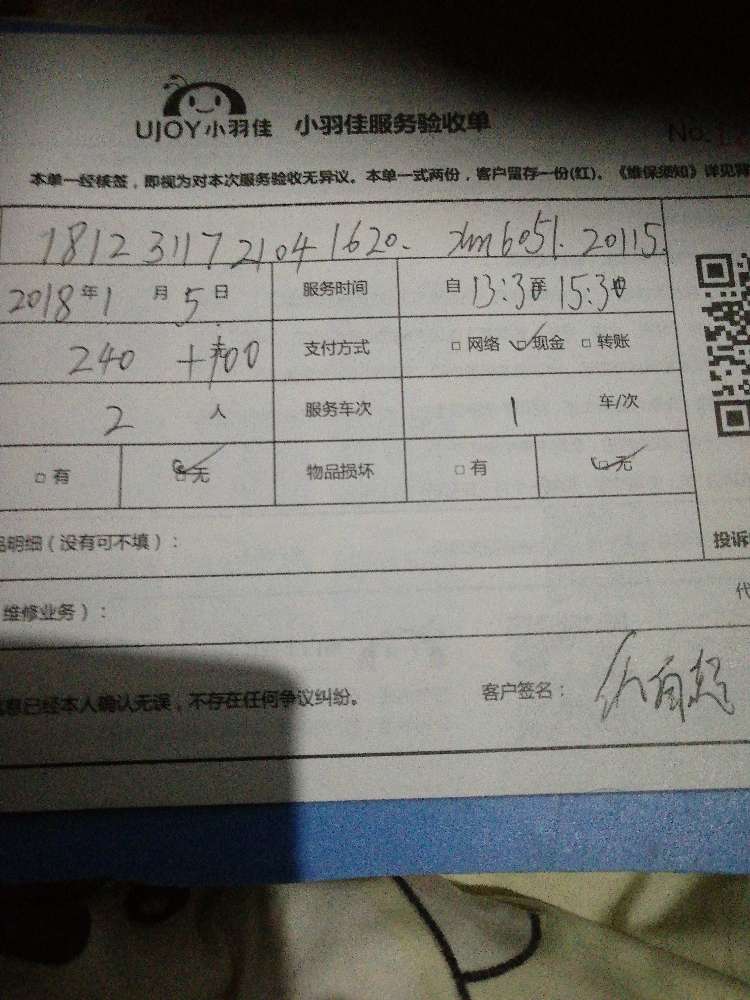 UJOY小羽佳 小羽佳服务验收单 No.
本单一经核签，即视为对本次服务验收无异议。本单一式两份，客户留存一份(红)。《维保须知》详见背
1812 3117 2104 1620. xm6051. 20115.
2018年1月5日 服务时间 自13:30至15:30
240 +100 支付方式 □网络 □现金 □转账
2人 服务车次 1 车/次
□有 □无 物品损坏 □有 □无
品明细（没有可不填）： 投诉
代
维修业务）：
信息已经本人确认无误，不存在任何争议纠纷。 客户签名：